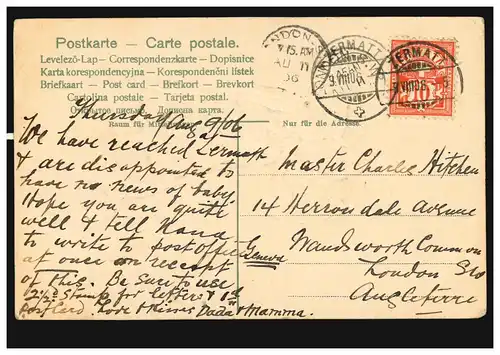 Postkarte - Carte postale.
Levelező-Lap - Correspondenzkarte - Dopisnice
Karta korespondencyjna - Korespondenční lístek
Briefkaart - Post card - Brefkort - Brevkort
Cartolina postale - Tarjeta postal.
Открытое письмо - Дописна карта.
Raum für
Nur für die Adresse.
Thursday Aug 9/06
We have reached Zermatt
& are disappointed to
have no news of baby.
Hope you are quite
well & tell Nana
to write to post office
Geneva
at once on receipt
of this. Be sure to use
a 2½d stamp for letters & 1d
postcard. Love & kisses Dada & Mamma.
Master Charles Hitchen
14 Herrondale Avenue
Wandsworth Common
London SW
Angleterre
ZERMATT
9 VIII 06
ZERMATT
9 VIII 06
LONDON
15 AM
AU 11
06
10